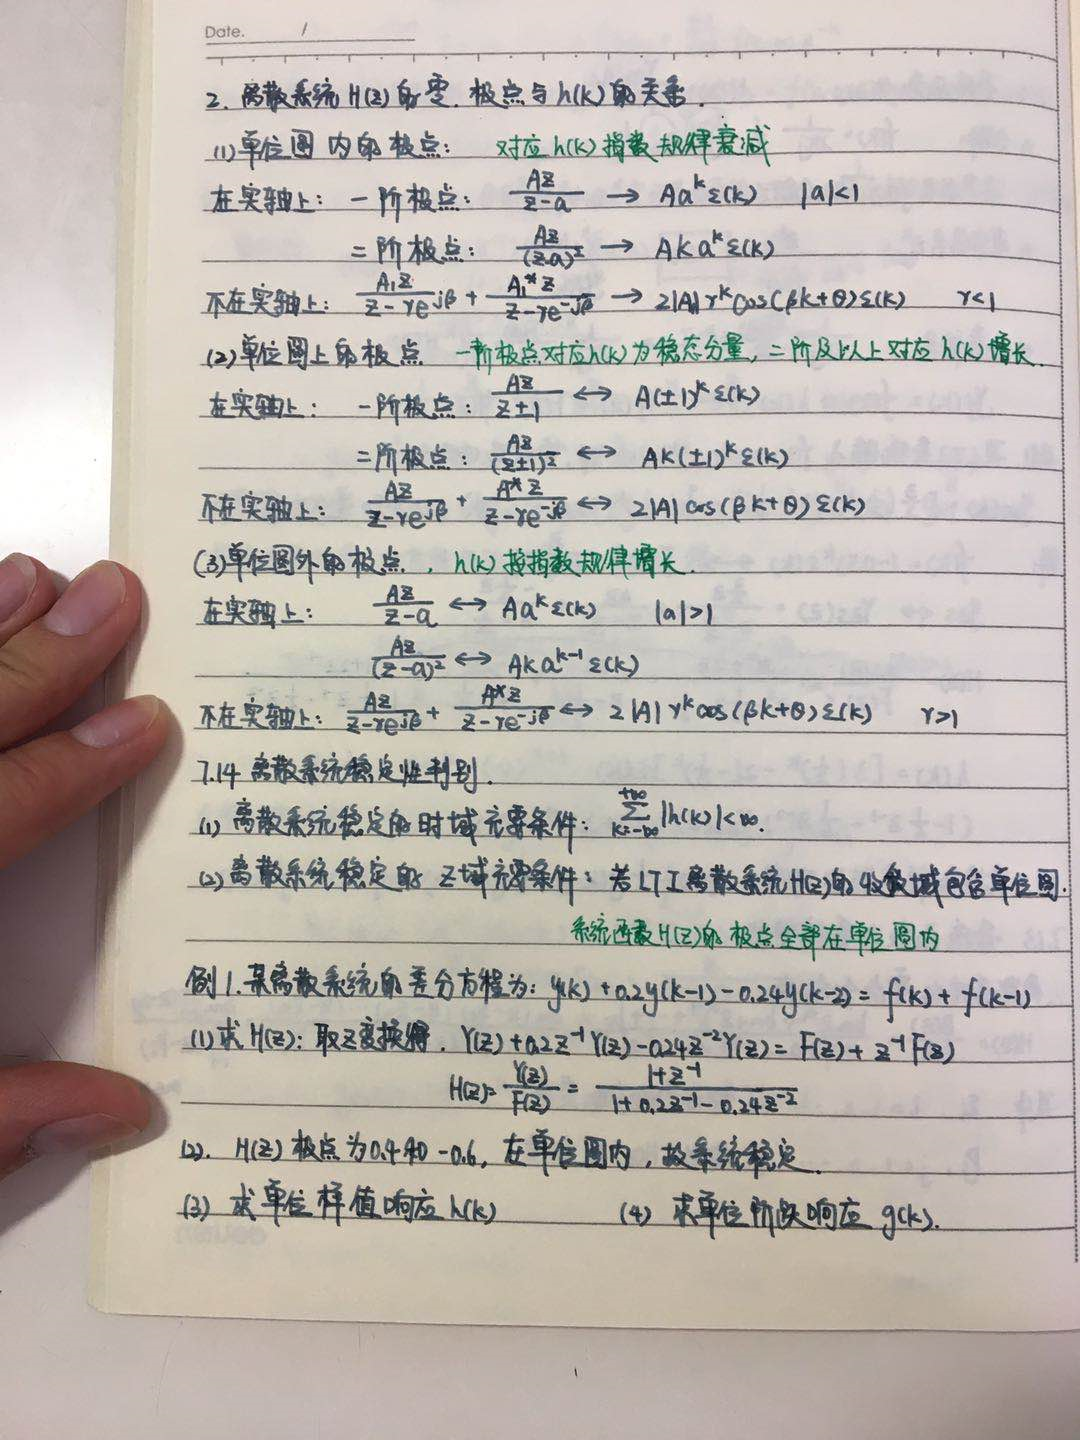 Date. /
2. 离散系统H(z)的零、极点与h(k)的关系.
(1)单位圆内的极点: 对应h(k)指数规律衰减
在实轴上: 一阶极点: Az/(z-a) → Aa^k ε(k) |a|<1
二阶极点: Az/(z-a)^2 → AKa^k ε(k)
不在实轴上: A₁z/(z-re^jβ) + A₁*z/(z-re^-jβ) → 2|A|r^k cos(βk+θ)ε(k) r<1
(2)单位圆上的极点 一阶极点对应h(k)为稳态分量, 二阶及以上对应h(k)增长.
在实轴上: 一阶极点: Az/(z±1) ↔ A(±1)^k ε(k)
二阶极点: Az/(z±1)^2 ↔ AK(±1)^k ε(k)
不在实轴上: Az/(z-re^jβ) + A*z/(z-re^-jβ) ↔ 2|A|cos(βk+θ)ε(k)
(3)单位圆外的极点., h(k)按指数规律增长.
在实轴上: Az/(z-a) ↔ Aa^k ε(k) |a|>1
Az/(z-a)^2 ↔ AKa^(k-1) ε(k)
不在实轴上: Az/(z-re^jβ) + A*z/(z-re^-jβ) ↔ 2|A|r^k cos(βk+θ)ε(k) r>1
7.14 离散系统稳定性判别.
(1) 离散系统稳定的时域充要条件: +∞∑k=-∞ |h(k)|<∞.
(2)离散系统稳定的Z域充要条件: 若LTI离散系统H(z)的收敛域包含单位圆.
系统函数H(z)的极点全部在单位圆内
例1.某离散系统的差分方程为: y(k)+0.2y(k-1)-0.24y(k-2)=f(k)+f(k-1)
(1)求H(z): 取Z变换得. Y(z)+0.2z^-1 Y(z)-0.24z^-2 Y(z)=F(z)+z^-1 F(z)
H(z)= Y(z)/F(z) = (1+z^-1)/(1+0.2z^-1-0.24z^-2)
(2). H(z)极点为0.4和-0.6, 在单位圆内, 故系统稳定.
(3) 求单位样值响应h(k) (4) 求单位阶跃响应g(k).